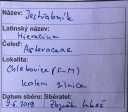 Název: Jestřábník
Latinský název:
Hieracium
Čeleď:
Asteraceae
Lokalita:
Chlebovice (F-M)
kolem silnice
Datum sběru: Sběratel:
9.6.2019 Zbyněk Lukeš